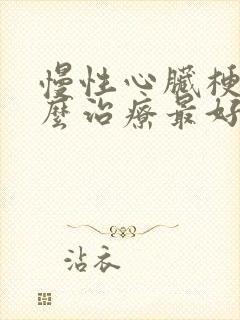 慢性心臟梗
麼治療最好
沾衣